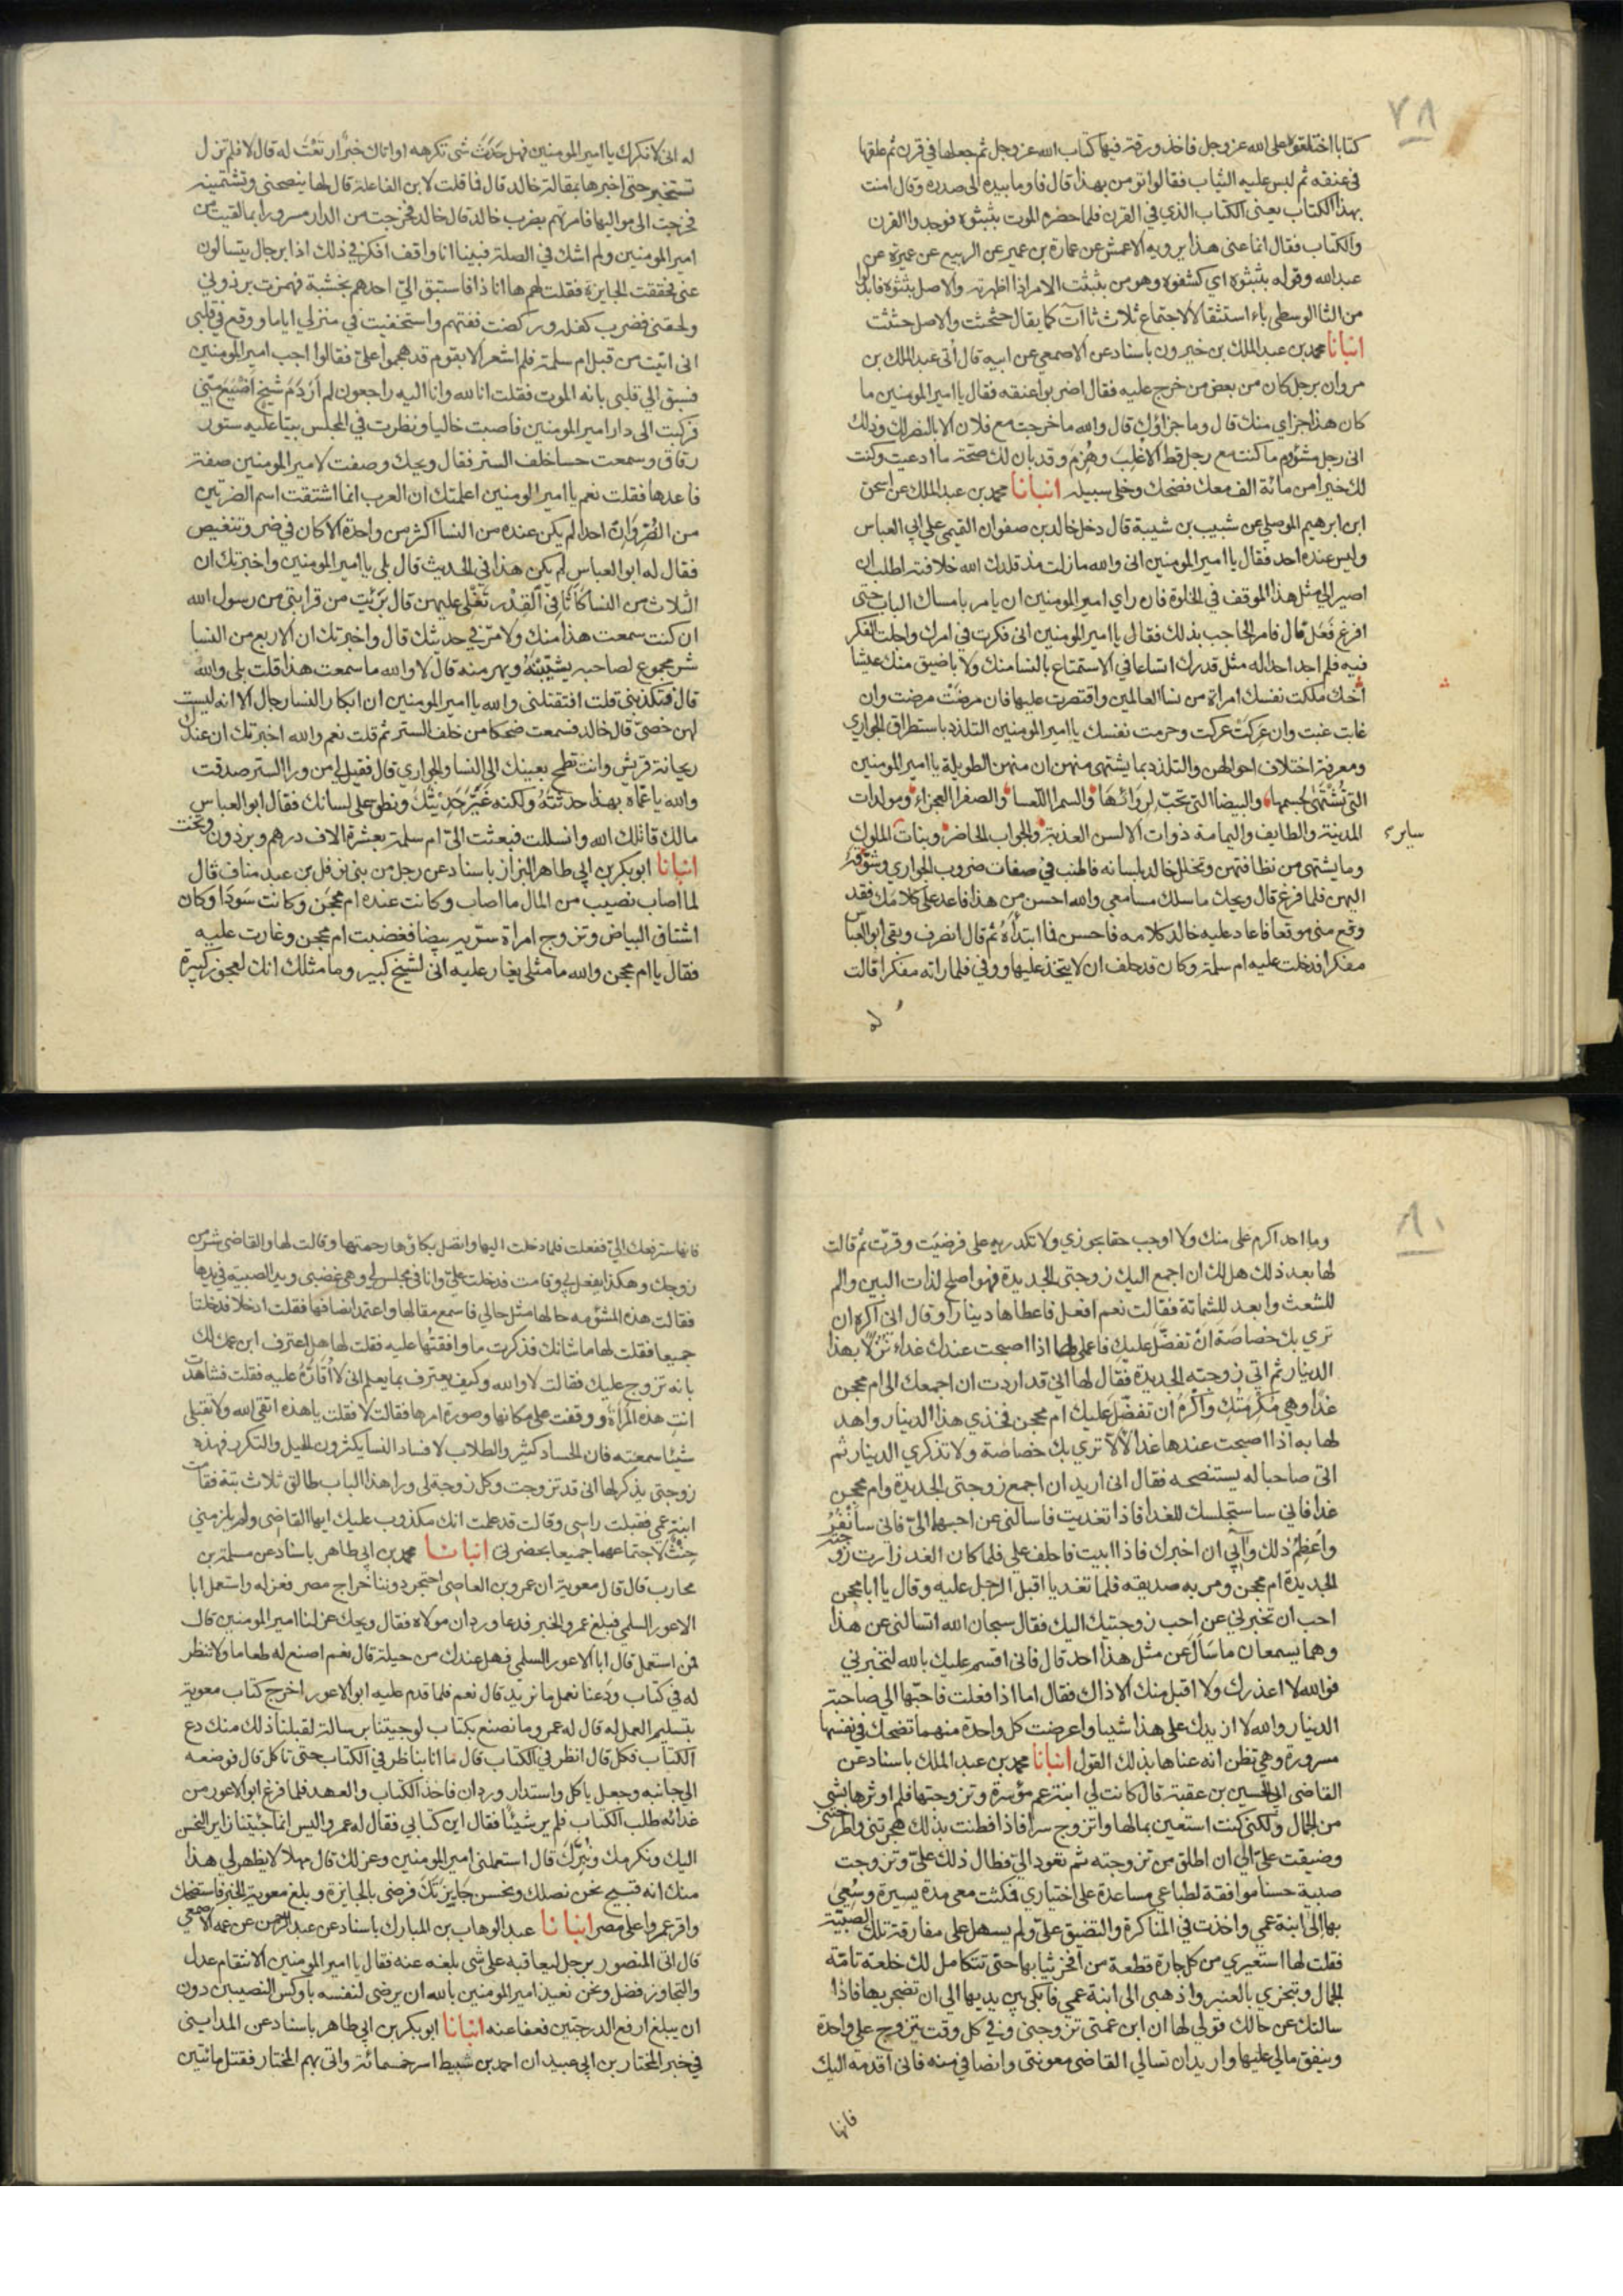 ٧٨
كتابا اختلقوه على الله عز وجل فاخذ ورقة فيها كتاب الله عز وجل ثم جعلها في قرن ثم علقها
في عنقه ثم لبس عليه الثياب فقالوا تؤمن بهذا قال فاوما بيده الى صدره وقال امنت
بهذا الكتاب يعني الكتاب الذي في القرن فلما حضره الموت بثبثوه فوجدوا القرن
والكتاب فقال انما عنى هذا يرويه الاعمش عن عمارة بن عمير عن الربيع عن عميرة عن
عبد الله وقوله بثبثوه اي كشفوه وهو من بثبثت الامر اذا اظهرته والاصل بثثوه فابدلوا
من الثا الوسطى باء استثقالا لاجتماع ثلاث ثاآت كما يقال حثحثت والاصل حثثت
انبانا محمد بن عبد الملك بن خيرون باسناد عن الاصمعي عن ابيه قال أتى عبد الملك بن
مروان برجل كان من بعض من خرج عليه فقال اضربوا عنقه فقال يا امير المومنين ما
كان هذا جزاي منك قال وما جزاؤك قال والله ما خرجت مع فلان الا بالنظر لك وذلك
اني رجل مشؤم ما كنت مع رجل قط الا غلب وهزم وقد بان لك صحة ما ادعيت وكنت
لك خيرا من مائة الف معك فضحك وخلى سبيله انبانا محمد بن عبد الملك عن اسحق
ابن ابرهيم الموصلي عن شبيب بن شيبة قال دخل خالد بن صفوان القيمي على ابي العباس
وليس عنده احد فقال يا امير المومنين اني والله ما زلت مذ قلدك الله خلافته اطلب ان
اصير الى مثل هذا الموقف في الخلوة فان راي امير المومنين ان يامر بامساك الباب حتى
افرغ فعل قال فامر الحاجب بذلك فقال يا امير المومنين اني فكرت في امرك واجلت الفكر
فيه فلم اجد احدا له مثل قدرك اتساعا في الاستمتاع بالنسا منك ولا باضيق منك عيشا
أنك ملكت نفسك امراة من نسا العالمين واقتصرت عليها فان مرضت مرضت وان
غابت غبت وان عركت عركت وحرمت نفسك يا امير المومنين التلذذ باستطراق الجواري
ومعرفة اختلاف احوالهن والتلذذ بما يشتهى منهن ان منهن الطويلة يا امير المومنين
التي تشتهى لجسمها والبيضا التي تحب لروائها والسمرا اللعسا والصفرا العجزاء ومولدات
المدينة والطايف واليمامة ذوات الالسن العذبة والجواب الحاضر وبنات الملوك
ساير
وما يشتهى من نظافتهن وتخلل خالد بلسانه فاطنب في صفات ضروب الجواري وشوقه
اليهن فلما فرغ قال ويحك ما سلك مسامعي والله احسن من هذا فاعد على كلامك فقد
وقع مني موقعا فاعاد عليه خالد كلامه فاحسن فما ابتدأه ثم قال انصرف وبقى ابو العباس
مفكرا فدخلت عليه ام سلمة وكان قد حلف ان لا يتخذ عليها ووفى فلما راته مفكرا قالت
له
له اني لانكرك يا امير المومنين فهل حدث شى تكرهه او اتاك خبر ارتعت له قال لا فلم تزل
تستخبره حتى اخبرها بمقالة خالد قال فما قلت لابن الفاعلة قال لها ينصحني وتشتمينه
فخرجت الى مواليها فامرتهم بضرب خالد قال خالد فخرجت من الدار مسرورا بما لقيت من
امير المومنين ولم اشك في الصلة فبينا انا واقف افكر في ذلك اذا برجال يتسالون
عني فحققت الجايزة فقلت لهم ها انا ذا فاستبق الي احدهم بخشبة فهمزت برذوني
ولحقني فضرب كفله وركضت ففتهم واستخفيت في منزلي اياما ووقع في قلبي
اني اتيت من قبل ام سلمة فلم اشعر الا بقوم قد هجموا علي فقالوا اجب امير المومنين
فسبق الى قلبي بانه الموت فقلت انا لله وانا اليه راجعون لم أر دم شيخ اضيع مني
فركبت الى دار امير المومنين فاصبت خاليا ونظرت في المجلس بيتا عليه ستور
رقاق وسمعت حسا خلف الستر فقال ويحك وصفت لامير المومنين صفة
فاعدها فقلت نعم يا امير المومنين اعلمتك ان العرب انما اشتقت اسم الضرتين
من الضر وان احدا لم يكن عنده من النسا اكثر من واحدة الا كان في ضر وتنغيص
فقال له ابو العباس لم يكن هذا في الحديث قال بلى يا امير المومنين واخبرتك ان
الثلاث من النسا كاثافي القدر تغلي عليهن قال برئت من قرابتي من رسول الله
ان كنت سمعت هذا منك ولا مر في حديثك قال واخبرتك ان الاربع من النسا
شر مجموع لصاحبه يشيبنه ويهرمنه قال لا والله ما سمعت هذا قلت بلى والله
قال فتكذبني قلت افتقتلني والله يا امير المومنين ان ابكار النسا رجال الا انه ليست
لهن خصى قال خالد فسمعت ضحكا من خلف الستر ثم قلت نعم والله اخبرتك ان عندك
ريحانة قريش وانت تطمح بعينك الى النسا والجواري قال فقيل لي من ورا الستر صدقت
والله يا عماه بهذا حدثته ولكنه غير حديثك ونطق على لسانك فقال ابو العباس
مالك قاتلك الله وانسللت فبعثت الي ام سلمة بعشرة الاف درهم وبرذون وتخت
انبانا ابو بكر بن ابي طاهر البزاز باسناد عن رجل من بني نوفل بن عبد مناف قال
لما اصاب نصيب من المال ما اصاب وكانت عنده ام محجن وكانت سودا وكان
اشتاق البياض وتزوج امراة سرية بيضا فغضبت ام محجن وغارت عليه
فقال يا ام محجن والله ما مثلي يغار عليه اني لشيخ كبير وما مثلك انك لعجوز كبيرة
٨٠
وما احد اكرم على منك ولا اوجب حقا فجوزي ولا تكدريه على فرضيت وقرت ثم قالت
لها بعد ذلك هل لك ان اجمع اليك زوجتي الجديدة فهو اصلح لذات البين والم
للشعث وابعد للشماتة فقالت نعم افعل فاعطاها دينارا وقال اني اكره ان
تري بك خصاصة أن تفضل عليك فاعملي لها اذا اصبحت عندك غداء نزلا بهذا
الدينار ثم اتى زوجته الجديدة فقال لها اني قد اردت ان اجمعك الى ام محجن
غدا وهي مكرمتك وأكره ان تفضل عليك ام محجن فخذي هذا الدينار واهد
لها به اذا اصبحت عندها غدا لالا تري بك خصاصة ولا تذكري الدينار ثم
اتى صاحبا له يستنصحه فقال اني اريد ان اجمع زوجتي الجديدة وام محجن
غدا فاني ساستجلسك للغدا فاذا تغديت فاسالني عن احبهما الي فاني سأنفر
واعظم ذلك وآبى ان اخبرك فاذا ابيت فاحلف علي فلما كان الغد زارت زوجته
الجديدة ام محجن ومر به صديقه فلما تغديا اقبل الرجل عليه وقال يا ابا محجن
احب ان تخبرني عن احب زوجتيك اليك فقال سبحان الله اتسالني عن هذا
وهما يسمعان ما سأل عن مثل هذا احد قال فاني اقسم عليك بالله لتخبرني
فوالله لا اعذرك ولا اقبل منك الا ذاك فقال اما اذا فعلت فاحبها الي صاحبة
الدينار والله لا ازيدك على هذا شيا واعرضت كل واحدة منهما تضحك في نفسها
مسرورة وهي تظن انه عناها بذلك القول انبانا محمد بن عبد الملك باسناد عن
القاضي ابي الحسين بن عقبة قال كانت لي ابنة عم مؤسرة وتزوجتها فلم اوثرها بشي
من الجمال ولكني كنت استعين بمالها واتزوج سرا فاذا فطنت بذلك هجرتني واطرحتني
وضيقت علي الى ان اطلق من تزوجته ثم تعود الي فطال ذلك علي وتزوجت
صبية حسنا موافقة لطباعي مساعدة على اختياري فمكثت معي مدة يسيرة وسعي
بها الى ابنة عمي واخذت في المناكرة والتضيق علي ولم يسهل على مفارقة تلك الصبية
فقلت لها استعيري من كل جارة قطعة من افخر ثيابها حتى تتكامل لك خلعة تامة
الجمال وتبخري بالعنبر واذهبي الى ابنة عمي فابكي بين يديها الى ان تضجر بها فاذا
سالتك عن حالك قولي لها ان ابن عمتي تزوجني وفي كل وقت يتزوج علي واحدة
وينفق مالي عليها واريد ان تسالي القاضي معونتي وانصافي منه فاني اقدمه اليك
فانها
فانها سترفعك الي ففعلت فلما دخلت اليها واتصل بكاؤها رحمتها وقالت لها والقاضي شر من
زوجك وهكذا يفعل بي وقامت فدخلت علي وانا في مجلس لي وهي غضبى ويد الصبية في يدها
فقالت هذه المشؤمه حالها مثل حالي فاسمع مقالها واعتمد انصافها فقلت ادخلا فدخلتا
جميعا فقلت لها ما شانك فذكرت ما وافقتها عليه فقلت لها هل اعترف ابن عمك لك
بانه تزوج عليك فقالت لا والله وكيف يعترف بما يعلم اني لا اقاره عليه فقلت فشاهدت
انت هذه المراة ووقفت على مكانها وصورة امرها فقالت لا فقلت يا هذه اتقي الله ولا تقبلي
شيئا سمعته فان الحساد كثير والطلاب لافساد النسا يكثرون الحيل والتكرر فهذه
زوجتي يذكر لها اني قد تزوجت وكل زوجة لي ورا هذا الباب طالق ثلاث بتة فقامت
ابنة عمي فقبلت راسي وقالت قد علمت انك مكذوب عليك ايها القاضي ولم يلزمني
حنث لاجتماعهما جميعا بحضرتي انبانا محمد بن ابي طاهر باسناد عن مسلمة بن
محارب قال قال معوية ان عمرو بن العاصي احتجر دوننا خراج مصر فعزله واستعمل ابا
الاعور السلمي فبلغ عمرو الخبر فدعا وردان مولاه فقال ويحك عزلنا امير المومنين قال
فمن استعمل قال ابا الاعور السلمي فهل عندك من حيلة قال نعم اصنع له طعاما ولا تنظر
له في كتاب ودعنا نعمل ما نريد قال نعم فلما قدم عليه ابو الاعور اخرج كتاب معوية
بتسليم العمل له قال له عمرو وما نصنع بكتاب لو جيتنا برسالة لقبلنا ذلك منك دع
الكتاب فكل قال انظر في الكتاب قال ما انا بناظر في الكتاب حتى تاكل قال فوضعه
الى جانبه وجعل ياكل واستدار وردان فاخذ الكتاب والعهد فلما فرغ ابو الاعور من
غدائه طلب الكتاب فلم ير شيئا فقال اين كتابي فقال له عمرو اليس انما جئتنا زايرا لنحسن
اليك ونكرمك ونبرك قال استعملني امير المومنين وعزلك قال مهلا لا يظهر لي هذا
منك انه قبيح نحن نصلك ونحسن جايزتك فرضى بالجايزة وبلغ معوية الخبر فاستضحك
واقر عمروا على مصر انبانا عبد الوهاب بن المبارك باسناد عن عبد الرحمن عن عمه الاصمعي
قال اتى المنصور برجل ليعاقبه على شى بلغه عنه فقال يا امير المومنين الانتقام عدل
والتجاوز فضل ونحن نعيذ امير المومنين بالله ان يرضى لنفسه باوكس النصيبين دون
ان يبلغ ارفع الدرجتين فعفا عنه انبانا ابو بكر بن ابي طاهر باسناد عن المدايني
في خبر المختار بن ابي عبيد ان احمد بن شبيط اسر خمسمائة واتى بهم المختار فقتل مائتين